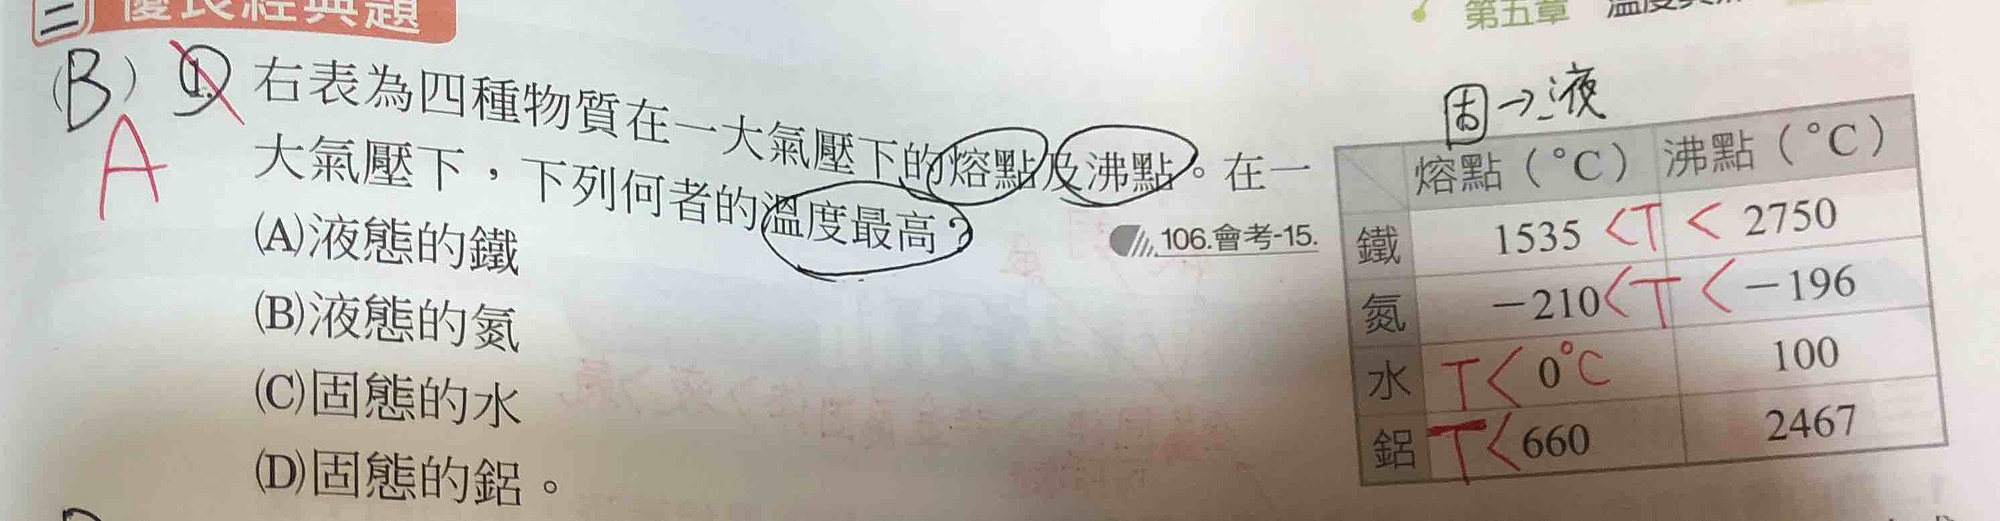 三 優良經典題
第五章
(B) 1. 右表為四種物質在一大氣壓下的熔點及沸點。在一
A
大氣壓下，下列何者的溫度最高？
106.會考-15.
(A)液態的鐵
(B)液態的氮
(C)固態的水
(D)固態的鋁。
固→液
熔點（°C） 沸點（°C）
鐵 1535 <T < 2750
氮 −210 <T < −196
水 T< 0°C 100
鋁 T< 660 2467